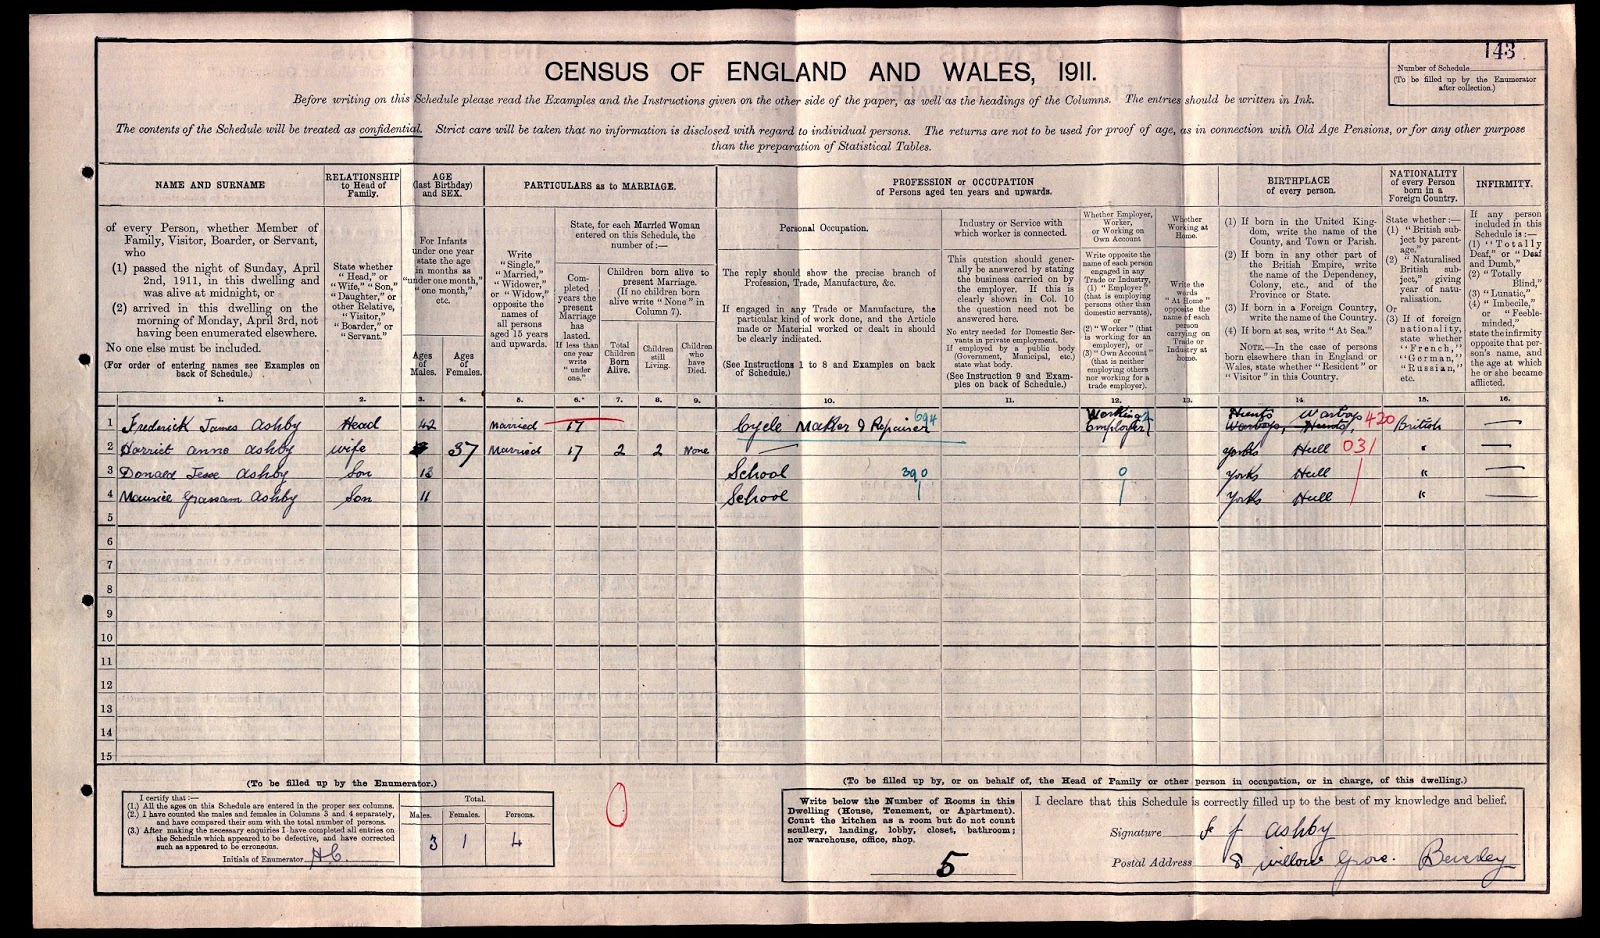 143
CENSUS OF ENGLAND AND WALES, 1911.
Number of Schedule
(To be filled up by the Enumerator
after collection.)
Before writing on this Schedule please read the Examples and the Instructions given on the other side of the paper, as well as the headings of the Columns. The entries should be written in Ink.
The contents of the Schedule will be treated as confidential. Strict care will be taken that no information is disclosed with regard to individual persons. The returns are not to be used for proof of age, as in connection with Old Age Pensions, or for any other purpose
than the preparation of Statistical Tables.
NAME AND SURNAME
of every Person, whether Member of
Family, Visitor, Boarder, or Servant,
who
(1) passed the night of Sunday, April
2nd, 1911, in this dwelling and
was alive at midnight, or
(2) arrived in this dwelling on the
morning of Monday, April 3rd, not
having been enumerated elsewhere.
No one else must be included.
(For order of entering names see Examples on
back of Schedule.)
RELATIONSHIP
to Head of
Family.
State whether
"Head," or
"Wife," "Son,"
"Daughter," or
other Relative,
"Visitor,"
"Boarder," or
"Servant."
AGE
(last Birthday)
and SEX.
For Infants
under one year
state the age
in months as
"under one month,"
"one month,"
etc.
Ages
of
Males.
Ages
of
Females.
PARTICULARS as to MARRIAGE.
Write
"Single,"
"Married,"
"Widower,"
or "Widow,"
opposite the
names of
all persons
aged 15 years
and upwards.
State, for each Married Woman
entered on this Schedule, the
number of:—
Com-
pleted
years the
present
Marriage
has
lasted.
If less than
one year
write
"under
one."
Children born alive to
present Marriage.
(If no children born
alive write "None" in
Column 7).
Total
Children
Born
Alive.
Children
still
Living.
Children
who
have
Died.
PROFESSION or OCCUPATION
of Persons aged ten years and upwards.
Personal Occupation.
The reply should show the precise branch of
Profession, Trade, Manufacture, &c.
If engaged in any Trade or Manufacture, the
particular kind of work done, and the Article
made or Material worked or dealt in should
be clearly indicated.
(See Instructions 1 to 8 and Examples on back
of Schedule.)
Industry or Service with
which worker is connected.
This question should gener-
ally be answered by stating
the business carried on by
the employer. If this is
clearly shown in Col. 10
the question need not be
answered here.
No entry needed for Domestic Ser-
vants in private employment.
If employed by a public body
(Government, Municipal, etc.)
state what body.
(See Instruction 9 and Exam-
ples on back of Schedule.)
Whether Employer,
Worker,
or Working on
Own Account
Write opposite the
name of each person
engaged in any
Trade or Industry,
(1) "Employer"
(that is employing
persons other than
domestic servants),
or
(2) "Worker" (that
is working for an
employer), or
(3) "Own Account"
(that is neither
employing others
nor working for a
trade employer).
Whether
Working at
Home.
Write the
words
"At Home"
opposite the
name of each
person
carrying on
Trade or
Industry at
home
BIRTHPLACE
of every person.
(1) If born in the United King-
dom, write the name of the
County, and Town or Parish.
(2) If born in any other part of
the British Empire, write
the name of the Dependency,
Colony, etc., and of the
Province or State.
(3) If born in a Foreign Country,
write the name of the Country.
(4) If born at sea, write "At Sea."
NOTE.—In the case of persons
born elsewhere than in England or
Wales, state whether "Resident" or
"Visitor" in this Country.
NATIONALITY
of every Person
born in a
Foreign Country.
State whether:—
(1) "British sub-
ject by parent-
age."
(2) "Naturalised
British sub-
ject," giving
year of natu-
ralisation.
Or
(3) If of foreign
nationality,
state whether
"French,"
"German,"
"Russian,"
etc.
INFIRMITY.
If any person
included in this
Schedule is:—
(1) "Totally
Deaf," or "Deaf
and Dumb,"
(2) "Totally
Blind,"
(3) "Lunatic,"
(4) "Imbecile,"
or "Feeble-
minded,"
state the infirmity
opposite that per-
son's name, and
the age at which
he or she became
afflicted.
1. 2. 3. 4. 5. 6. 7. 8. 9. 10. 11. 12. 13. 14. 15. 16.
1 Frederick James Ashby Head 42 Married 17 Cycle Maker & Repairer 694 Working Employer 2 Hunts Warboys Warboys, Hunts, 420 British
2 Harriet Anne Ashby Wife 37 Married 17 2 2 None Yorks Hull 031 "
3 Donald Jesse Ashby Son 13 School 390 0 Yorks Hull "
4 Maurice Grassam Ashby Son 11 School Yorks Hull "
5
6
7
8
9
10
11
12
13
14
15
(To be filled up by the Enumerator.)
I certify that:—
(1.) All the ages on this Schedule are entered in the proper sex columns.
(2.) I have counted the males and females in Columns 3 and 4 separately,
and have compared their sum with the total number of persons.
(3.) After making the necessary enquiries I have completed all entries on
the Schedule which appeared to be defective, and have corrected
such as appeared to be erroneous.
Initials of Enumerator HC.
Total.
Males. Females. Persons.
3 1 4
0
(To be filled up by, or on behalf of, the Head of Family or other person in occupation, or in charge, of this dwelling.)
Write below the Number of Rooms in this
Dwelling (House, Tenement, or Apartment).
Count the kitchen as a room but do not count
scullery, landing, lobby, closet, bathroom;
nor warehouse, office, shop.
5
I declare that this Schedule is correctly filled up to the best of my knowledge and belief.
Signature F J Ashby
Postal Address 8 Willow Grove. Beverley